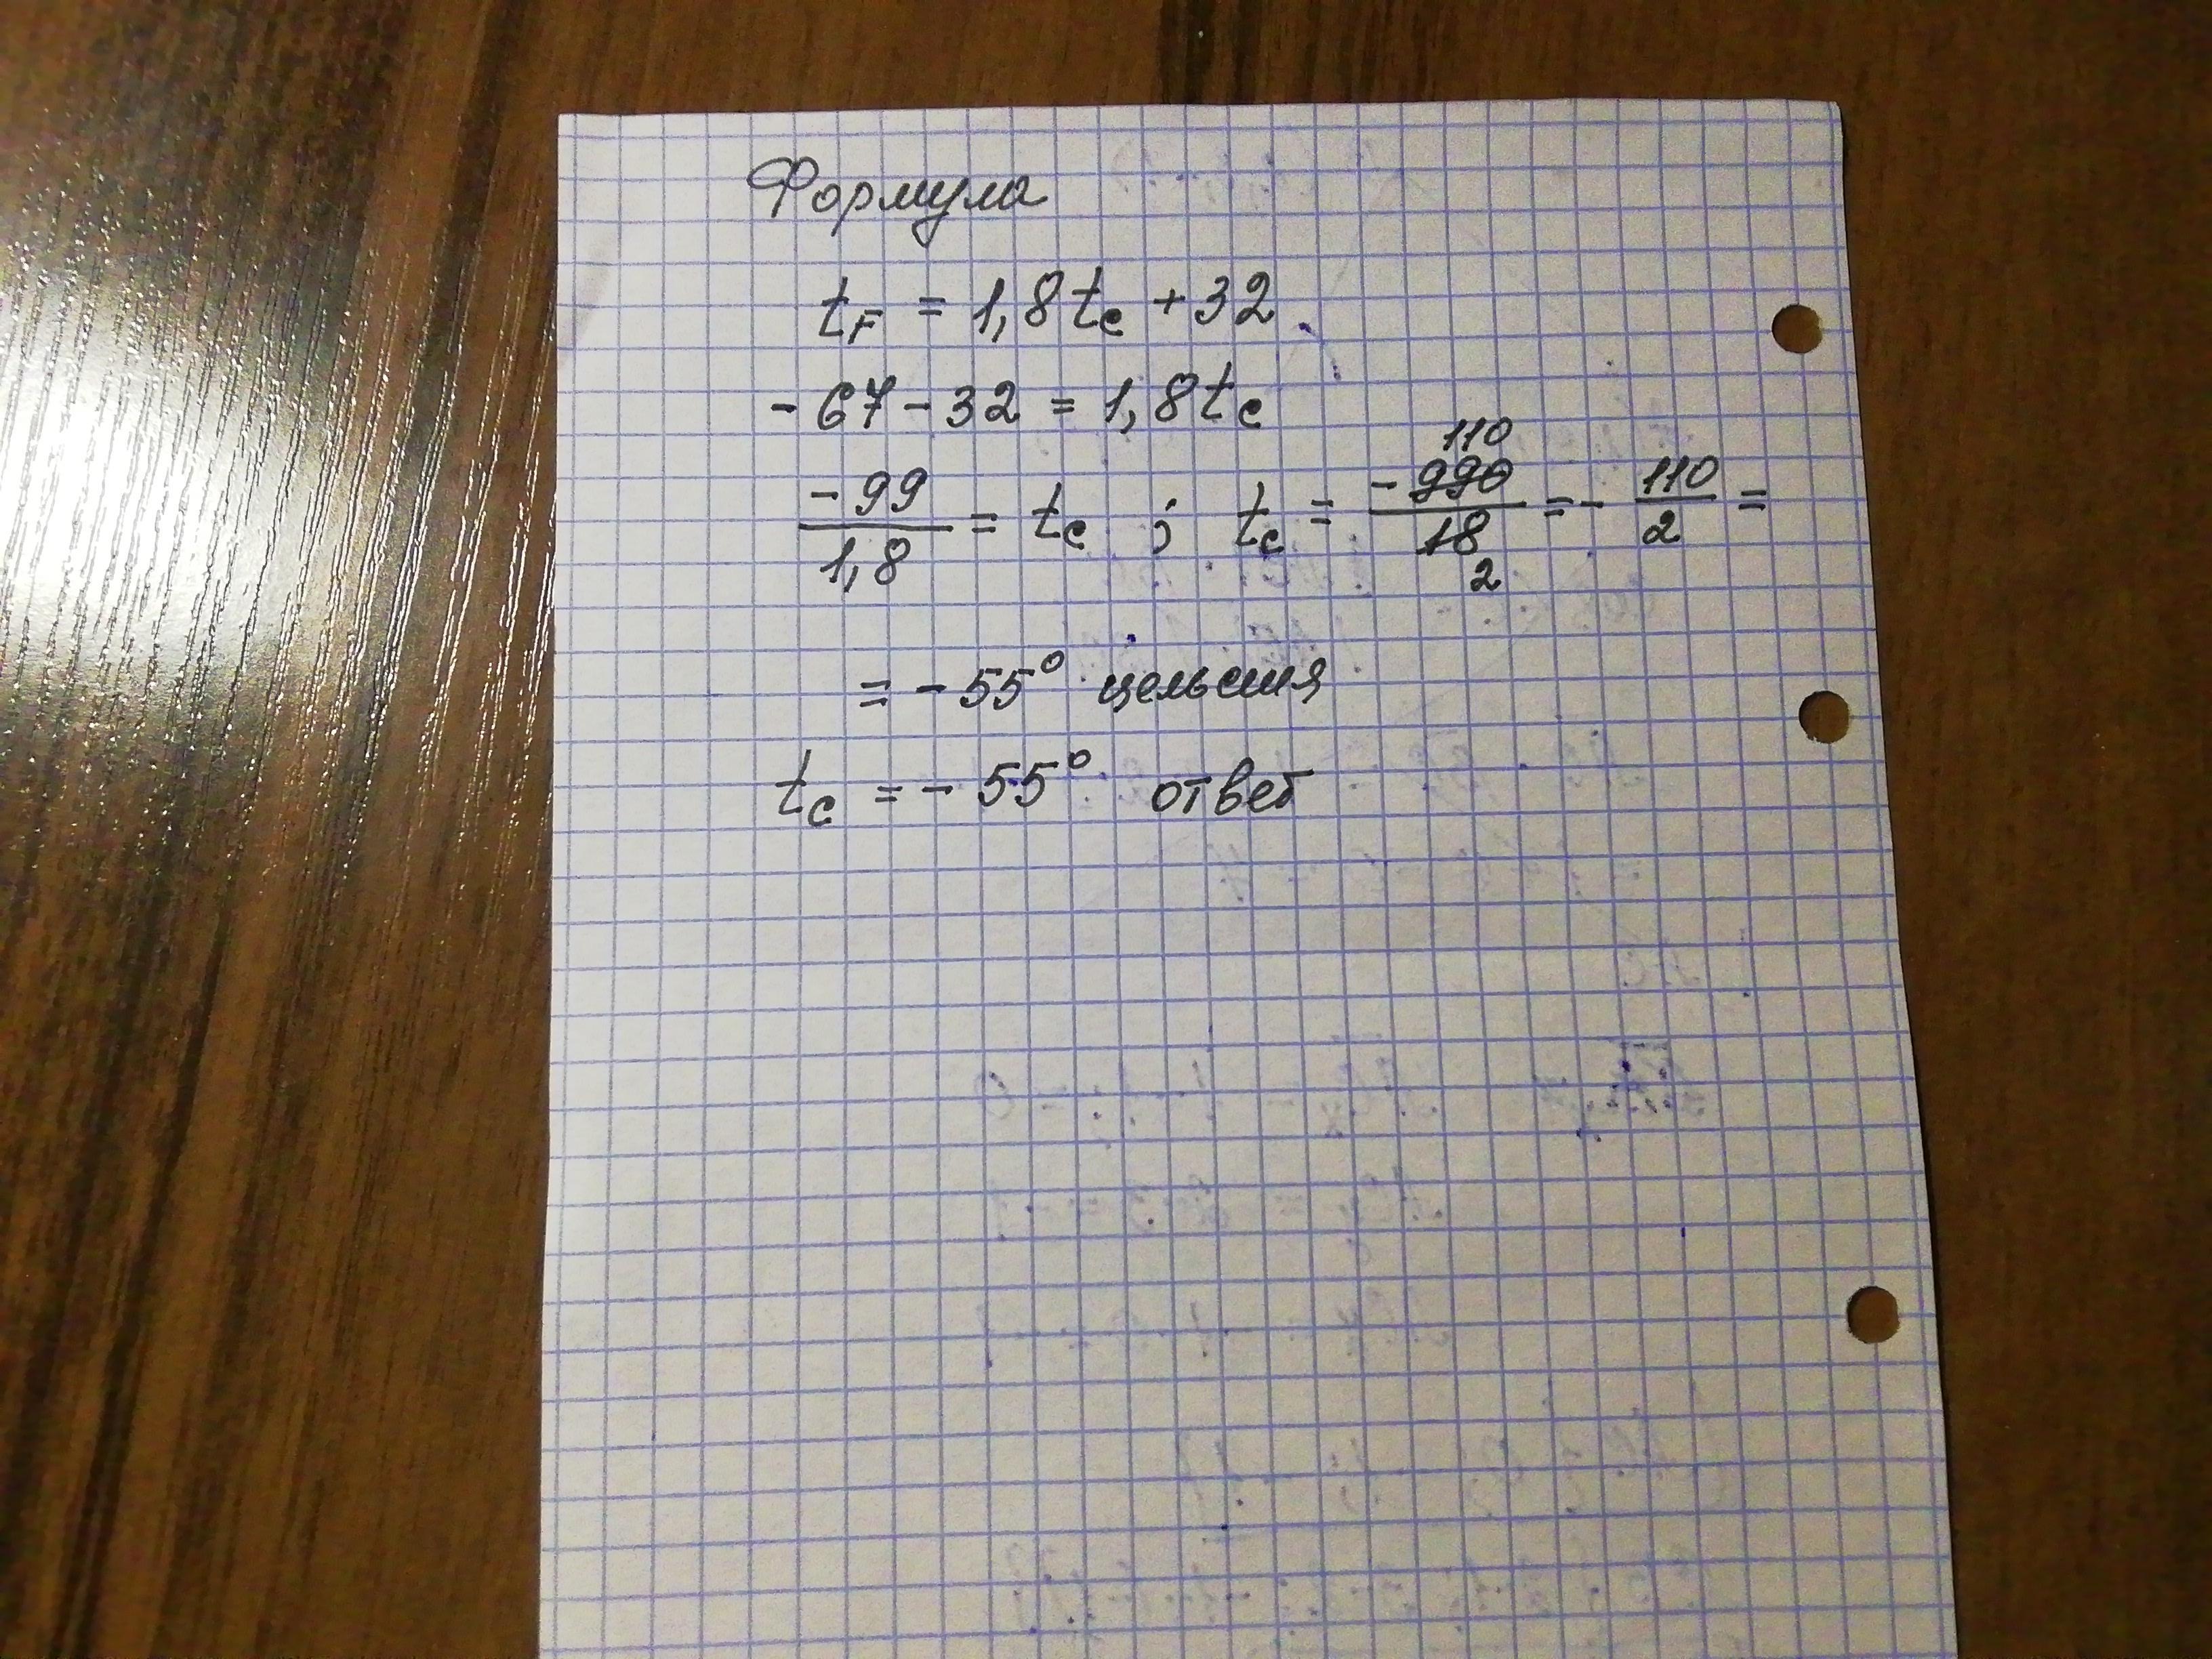 Формула
tF = 1,8tc + 32
- 67 - 32 = 1,8tc
-99/1,8 = tc ; tc = -990/18 = - 110/2 =
110
2
= - 55° цельсия
tc = - 55° ответ